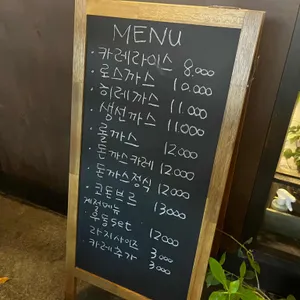 MENU
· 카레라이스 8.000
· 로스까스 10.000
· 히레까스 11.000
· 생선까스 11.000
· 롤까스 12.000
· 돈까스카레 12.000
· 돈까스정식 12.000
· 코돈부르 13000
계절메뉴
우동set 12000
라지사이즈 3.000
카레추가 3.000